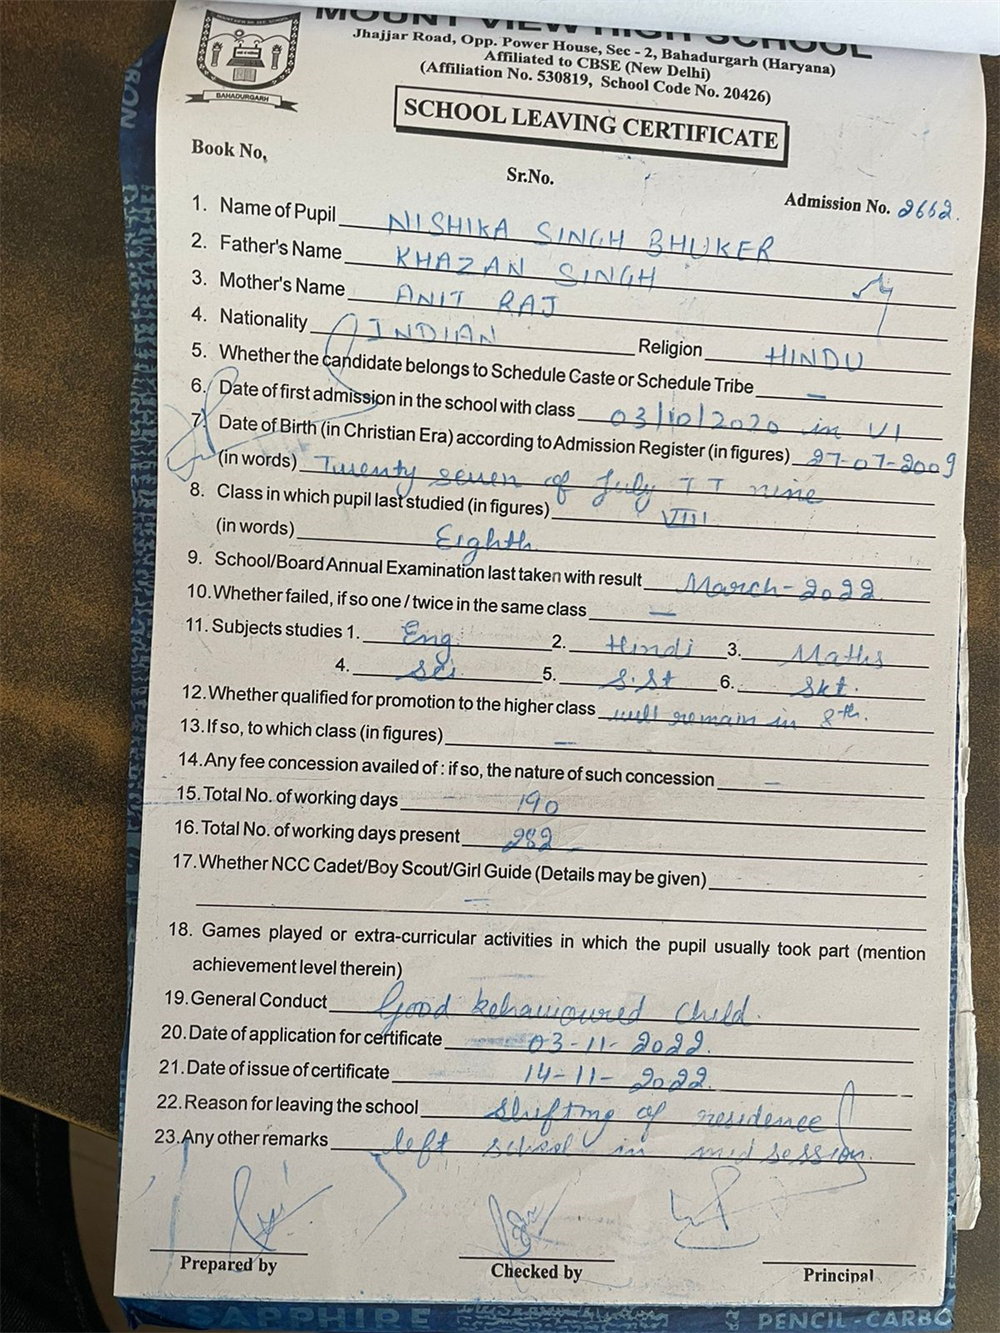 MOUNT VIEW HIGH SCHOOL
Jhajjar Road, Opp. Power House, Sec - 2, Bahadurgarh (Haryana)
Affiliated to CBSE (New Delhi)
(Affiliation No. 530819, School Code No. 20426)
BAHADURGARH
SCHOOL LEAVING CERTIFICATE
Book No,
Sr.No.
Admission No. 2662.
1. Name of Pupil NISHIKA SINGH BHUKER
2. Father's Name KHAZAN SINGH
3. Mother's Name ANIT RAJ
4. Nationality INDIAN Religion HINDU
5. Whether the candidate belongs to Schedule Caste or Schedule Tribe –
6. Date of first admission in the school with class 03/10/2020 in VI
7. Date of Birth (in Christian Era) according to Admission Register (in figures) 27-07-2009
(in words) Twenty seven of July TT nine
8. Class in which pupil last studied (in figures) VIII
(in words) Eighth
9. School/Board Annual Examination last taken with result March-2022
10. Whether failed, if so one / twice in the same class –
11. Subjects studies 1. Eng 2. Hindi 3. Maths
4. Sci 5. S.St 6. Skt.
12. Whether qualified for promotion to the higher class will remain in 8th.
13. If so, to which class (in figures) –
14. Any fee concession availed of : if so, the nature of such concession –
15. Total No. of working days 190
16. Total No. of working days present 282
17. Whether NCC Cadet/Boy Scout/Girl Guide (Details may be given)
–
18. Games played or extra-curricular activities in which the pupil usually took part (mention
achievement level therein)
19. General Conduct Good behavioured child.
20. Date of application for certificate 03-11-2022.
21. Date of issue of certificate 14-11-2022.
22. Reason for leaving the school shifting of residence
23. Any other remarks left school in mid session.
Prepared by Checked by Principal
SAPPHIRE PENCIL-CARBO